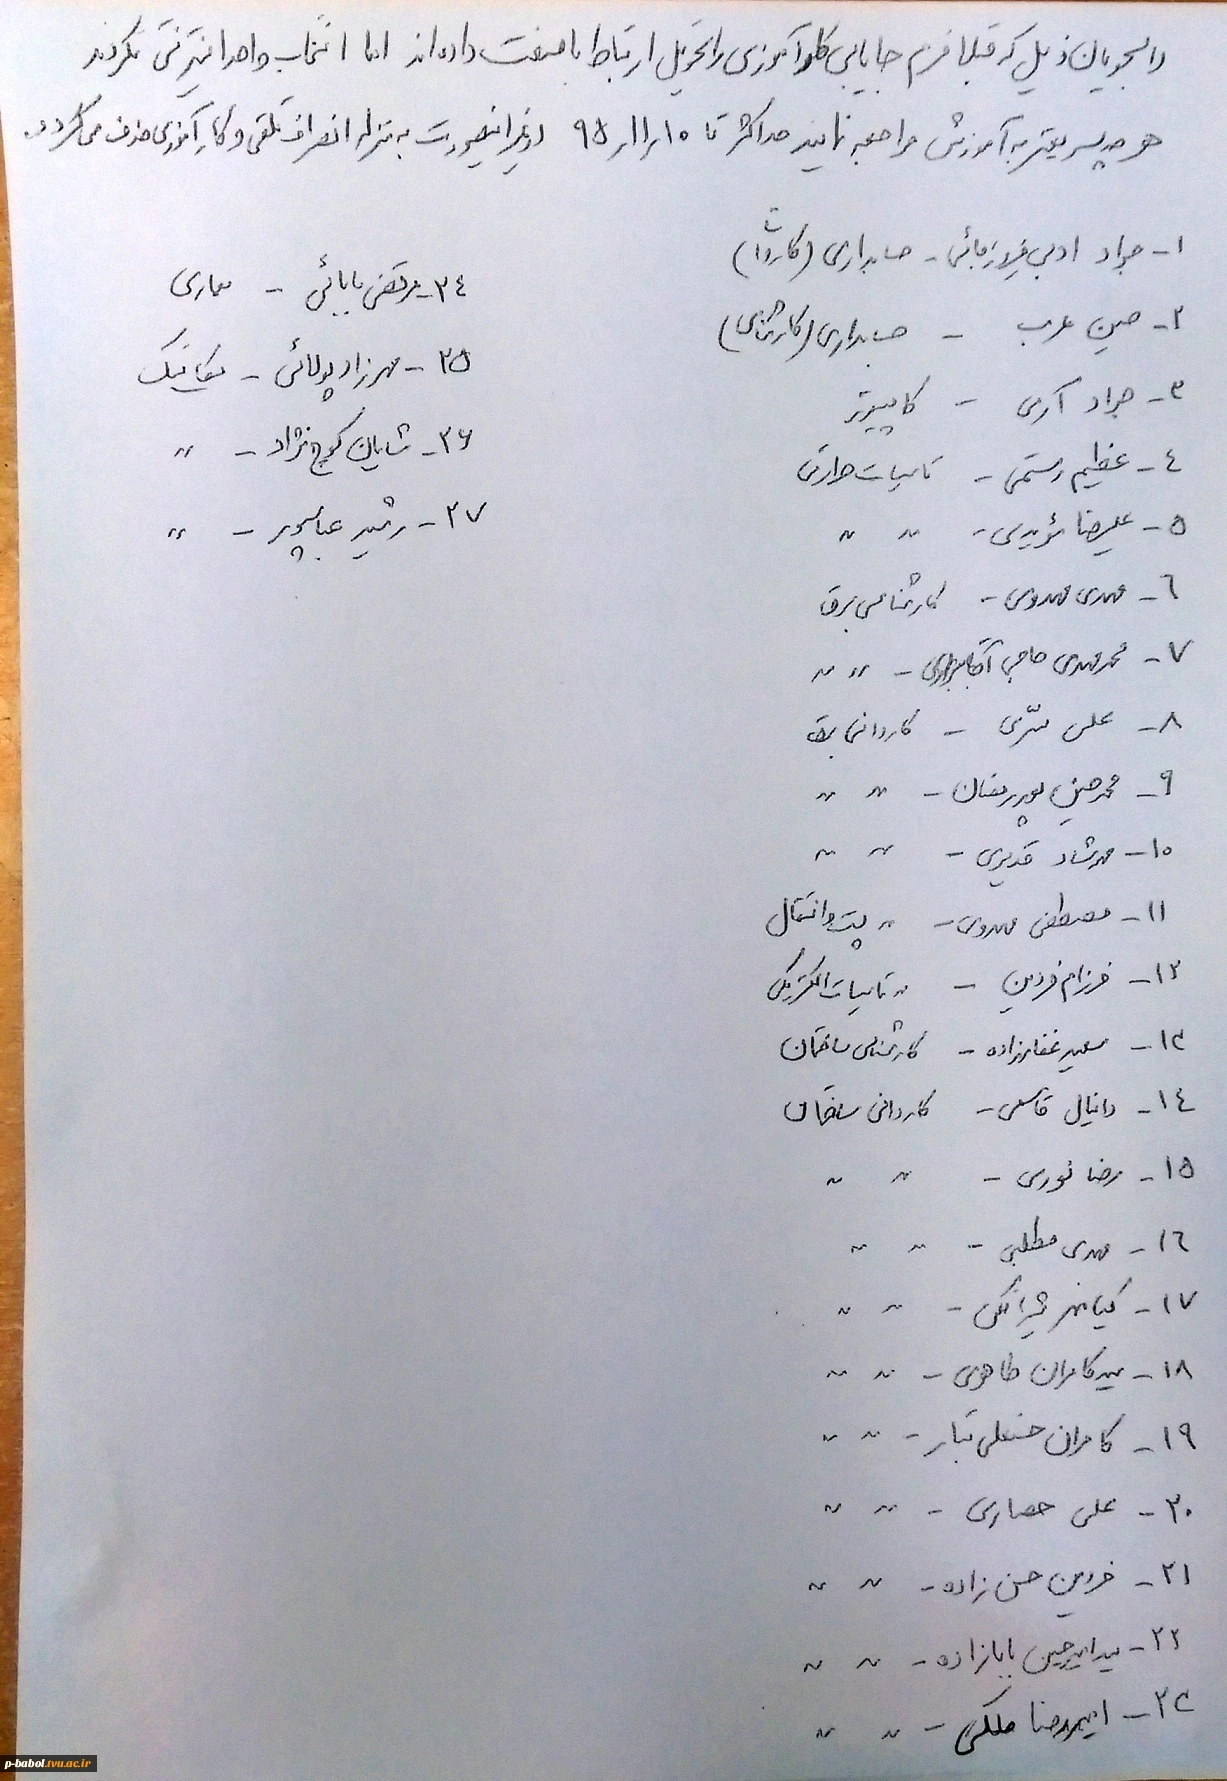 دانشجویان ذیل که قبلا فرم جایابی کارآموزی را تحویل ارتباط با صنعت داده اند اما انتخاب واحد اینترنتی نکردند
هر چه سریعتر به آموزش مراجعه نمایند حداکثر تا ۱۰ر۱۱ر۹۵ در غیر اینصورت به منزله انصراف تلقی و کارآموزی حذف می گردد.
۱- جواد ادبی - حسابداری (کاردانی)
۲- حسین عرب - حسابداری (کارشناسی)
۳- جواد آرمی - کامپیوتر
۴- عظیم رستمی - تاسیسات حرارتی
۵- علیرضا مؤیدی - " "
۶- مهدی مهدوی - کارشناسی برق
۷- محمدمهدی حاجی - " "
۸- علی - کاردانی برق
۹- محمدحسین پوررمضان - " "
۱۰- مهرشاد قدیری - " "
۱۱- مصطفی مهدوی - " پست و انتقال
۱۲- فرزام فردین - " تاسیسات الکتریکی
۱۳- سعید غفارزاده - کارشناسی ساختمان
۱۴- دانیال قاسمی - کاردانی ساختمان
۱۵- رضا نوری - " "
۱۶- مهدی مطلبی - " "
۱۷- کیانمهر - " "
۱۸- سیدکامران طاهری - " "
۱۹- کامران حسنعلی تبار - " "
۲۰- علی حصاری - " "
۲۱- فردین حسن زاده - " "
۲۲- سیدامیرحسین بابازاده - " "
۲۳- امیررضا ملکی - " "
۲۴- مرتضی بابائی - معماری
۲۵- مهرزاد پولائی - مکانیک
۲۶- شایان کوچ نژاد - "
۲۷- رشید عباسپور - "
p-babol.tvu.ac.ir